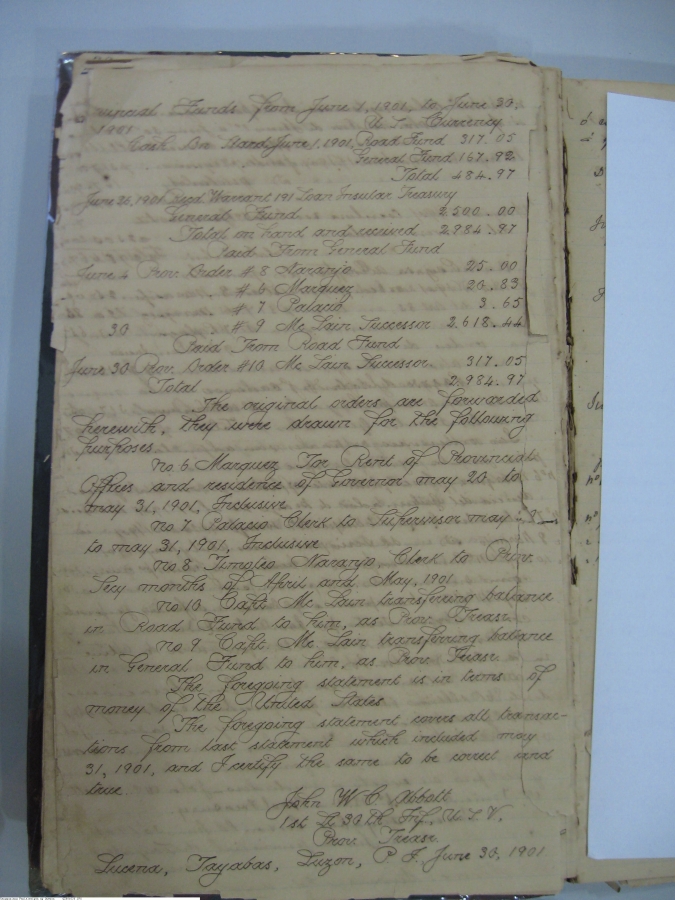 uncial Funds from June 1, 1901, to June 30,
1901 U.S. Currency
Cash On Hand June 1, 1901, Road Fund 317.05
General Fund 167.92
Total 484.97
June 26, 1901, Recd Warrant 191 Loan Insular Treasury
General Fund 2500.00
Total on hand and received 2984.97
Paid From General Fund
June 4 Prov. Order # 8 Naranjo 25.00
" # 6 Marquez 20.83
" # 7 Palacio 3.65
30 # 9 Mc Lain Successor 2.618.44
Paid From Road Fund
June 30 Prov. Order #10 Mc Lain Successor. 317.05
Total 2,984.97
The original orders are forwarded
herewith, they were drawn for the following
purposes.
No 6 Marquez For Rent of Provincial
Offices and residence of Governor may 20 to
may 31, 1901, Inclusive
No. 7 Palacio Clerk to Supervisor may 8
to may 31, 1901, Inclusive
No 8 Timoteo Naranjo, Clerk to Prov.
Secy months of April and May, 1901
No 10 Capt Mc Lain transferring balance
in Road Fund to him, as Prov. Treasr.
No. 9 Capt Mc Lain transferring balance
in General Fund to him, as Prov. Treasr.
The foregoing statement is in terms of
money of the United States
The foregoing statement covers all transac-
tions from last statement which included may
31, 1901, and I certify the same to be correct and
true.
John W. C. Abbott
1st Lt 30th Inf. U.S.V.
Prov. Treasr.
Lucena, Tayabas, Luzon, P I. June 30, 1901